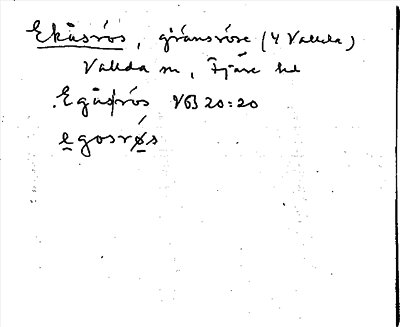 Ekåsrös, gränsröse (4 Vallda)
Vallda sn, Fjäre hd
Egåsrös VB 20:20
e̲gosrǿ̲s